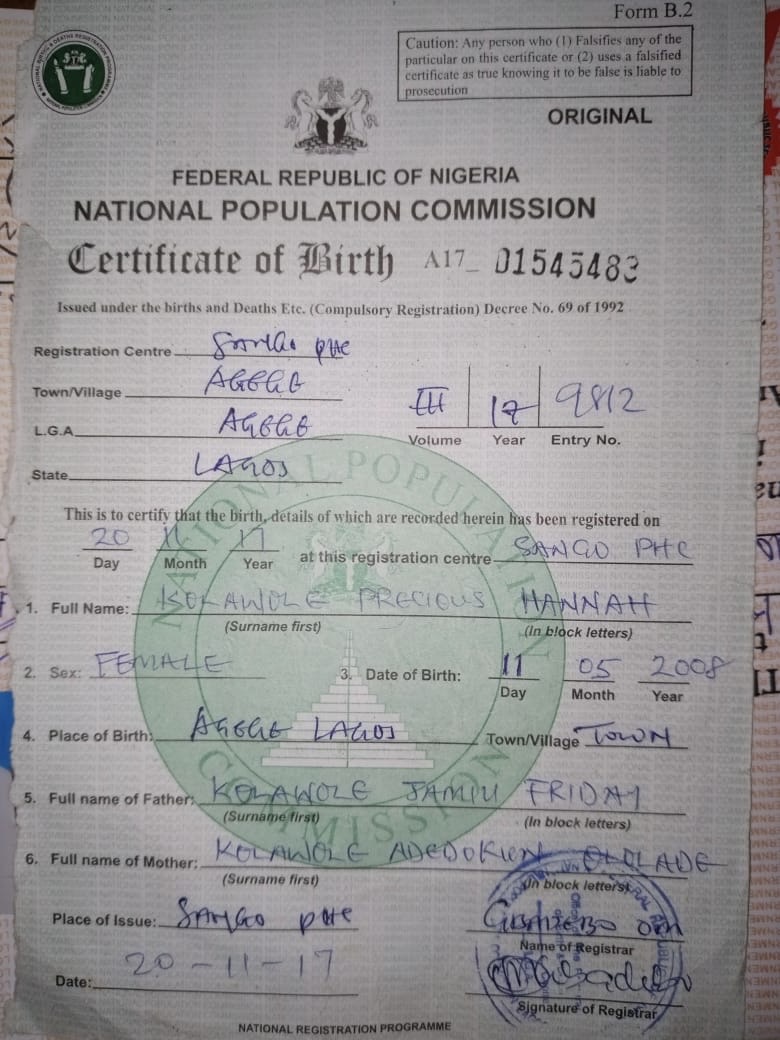 Form B.2
Caution: Any person who (1) Falsifies any of the
particular on this certificate or (2) uses a falsified
certificate as true knowing it to be false is liable to
prosecution
ORIGINAL
FEDERAL REPUBLIC OF NIGERIA
NATIONAL POPULATION COMMISSION
Certificate of Birth A17_ 01545483
Issued under the births and Deaths Etc. (Compulsory Registration) Decree No. 69 of 1992
Registration Centre Sango PHC
Town/Village AGEGE
L.G.A AGEGE
State LAGOS
III 17 9812
Volume Year Entry No.
This is to certify that the birth, details of which are recorded herein has been registered on
20 11 17 at this registration centre SANGO PHC
Day Month Year
1. Full Name: KOLAWOLE PRECIOUS HANNAH
(Surname first) (In block letters)
2. Sex: FEMALE 3. Date of Birth: 11 05 2008
Day Month Year
4. Place of Birth: AGEGE LAGOS Town/Village TOWN
5. Full name of Father: KOLAWOLE JAMIU FRIDAY
(Surname first) (In block letters)
6. Full name of Mother: KOLAWOLE
(Surname first) (In block letters)
Place of Issue: SANGO PHC
Name of Registrar
Date: 20-11-17
Signature of Registrar
NATIONAL REGISTRATION PROGRAMME
NATIONAL POPULATION COMMISSION